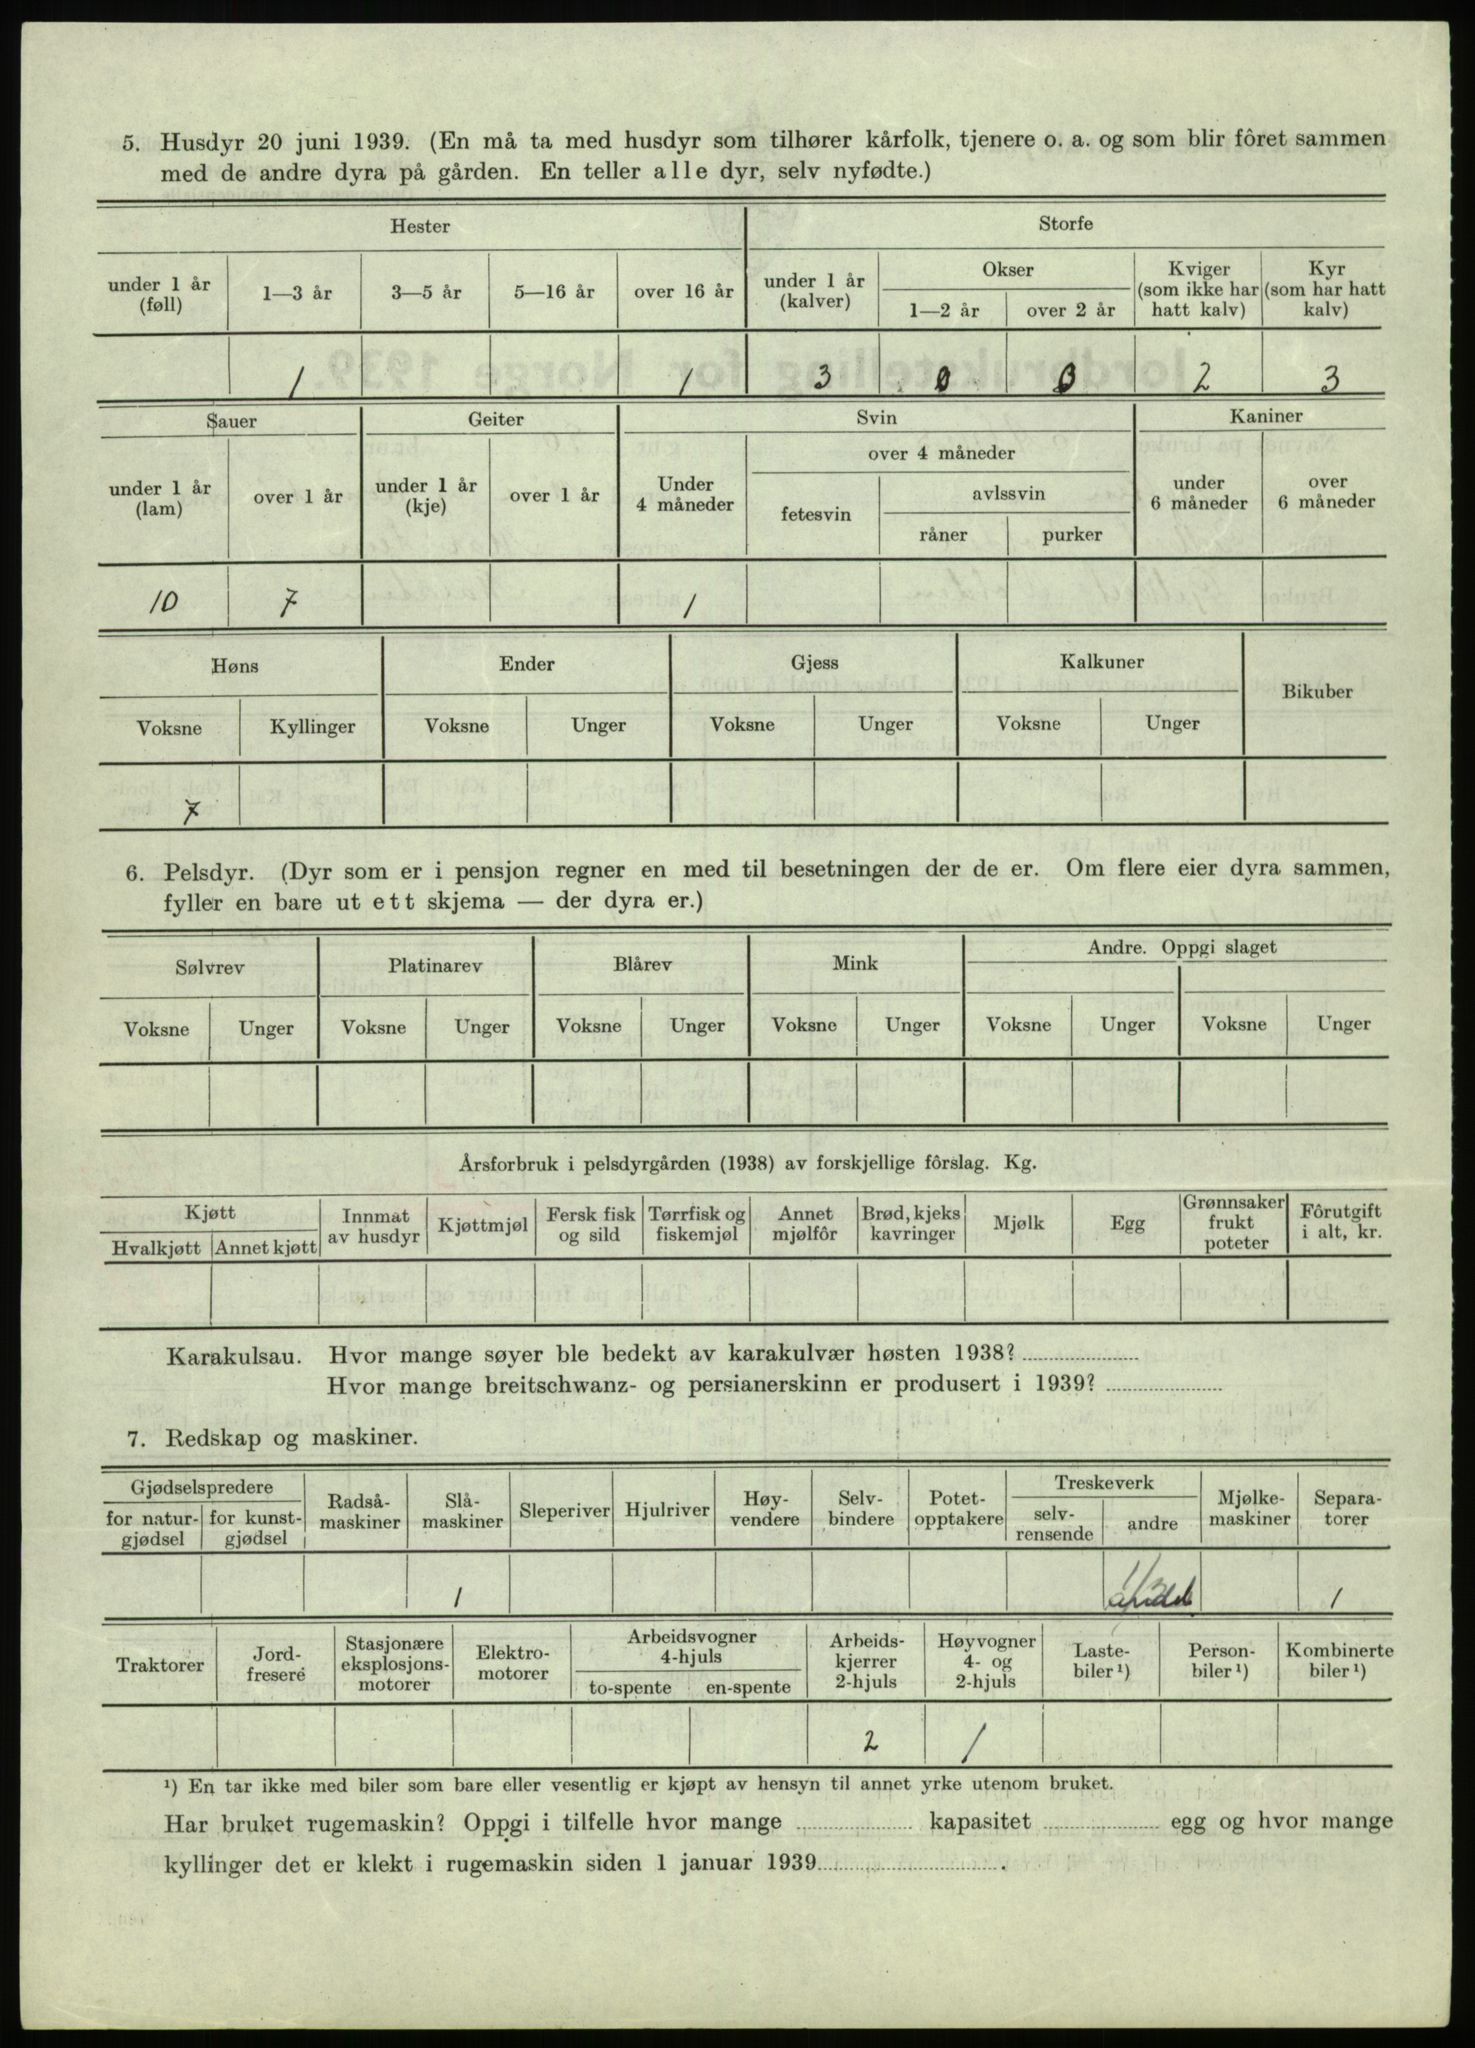 5. Husdyr 20 juni 1939. (En må ta med husdyr som tilhører kårfolk, tjenere o. a. og som blir fôret sammen
med de andre dyra på gården. En teller alle dyr, selv nyfødte.)
Hester Storfe
under 1 år (føll) 1—3 år 3—5 år 5—16 år over 16 år under 1 år (kalver) Okser 1—2 år over 2 år Kviger (som ikke har hatt kalv) Kyr (som har hatt kalv)
1 1 3 0 0 2 3
Sauer Geiter Svin Kaniner
under 1 år (lam) over 1 år under 1 år (kje) over 1 år Under 4 måneder over 4 måneder fetesvin avlssvin råner purker under 6 måneder over 6 måneder
10 7 1
Høns Ender Gjess Kalkuner Bikuber
Voksne Kyllinger Voksne Unger Voksne Unger Voksne Unger
7
6. Pelsdyr. (Dyr som er i pensjon regner en med til besetningen der de er. Om flere eier dyra sammen,
fyller en bare ut ett skjema — der dyra er.)
Sølvrev Platinarev Blårev Mink Andre. Oppgi slaget
Voksne Unger Voksne Unger Voksne Unger Voksne Unger Voksne Unger Voksne Unger
Årsforbruk i pelsdyrgården (1938) av forskjellige fôrslag. Kg.
Kjøtt Hvalkjøtt Annet kjøtt Innmat av husdyr Kjøttmjøl Fersk fisk og sild Tørrfisk og fiskemjøl Annet mjølfôr Brød, kjeks kavringer Mjølk Egg Grønnsaker frukt poteter Fôrutgift i alt, kr.
Karakulsau. Hvor mange søyer ble bedekt av karakulvær høsten 1938?
Hvor mange breitschwanz- og persianerskinn er produsert i 1939?
7. Redskap og maskiner.
Gjødselspredere for naturgjødsel for kunstgjødsel Radsåmaskiner Slåmaskiner Sleperiver Hjulriver Høyvendere Selvbindere Potetopptakere Treskeverk selvrensende andre Mjølkemaskiner Separatorer
1 1
Traktorer Jordfresere Stasjonære eksplosjonsmotorer Elektromotorer Arbeidsvogner 4-hjuls to-spente en-spente Arbeidskjerrer 2-hjuls Høyvogner 4- og 2-hjuls Lastebiler¹) Personbiler¹) Kombinerte biler¹)
2 1
¹) En tar ikke med biler som bare eller vesentlig er kjøpt av hensyn til annet yrke utenom bruket.
Har bruket rugemaskin? Oppgi i tilfelle hvor mange kapasitet egg og hvor mange
kyllinger det er klekt i rugemaskin siden 1 januar 1939.